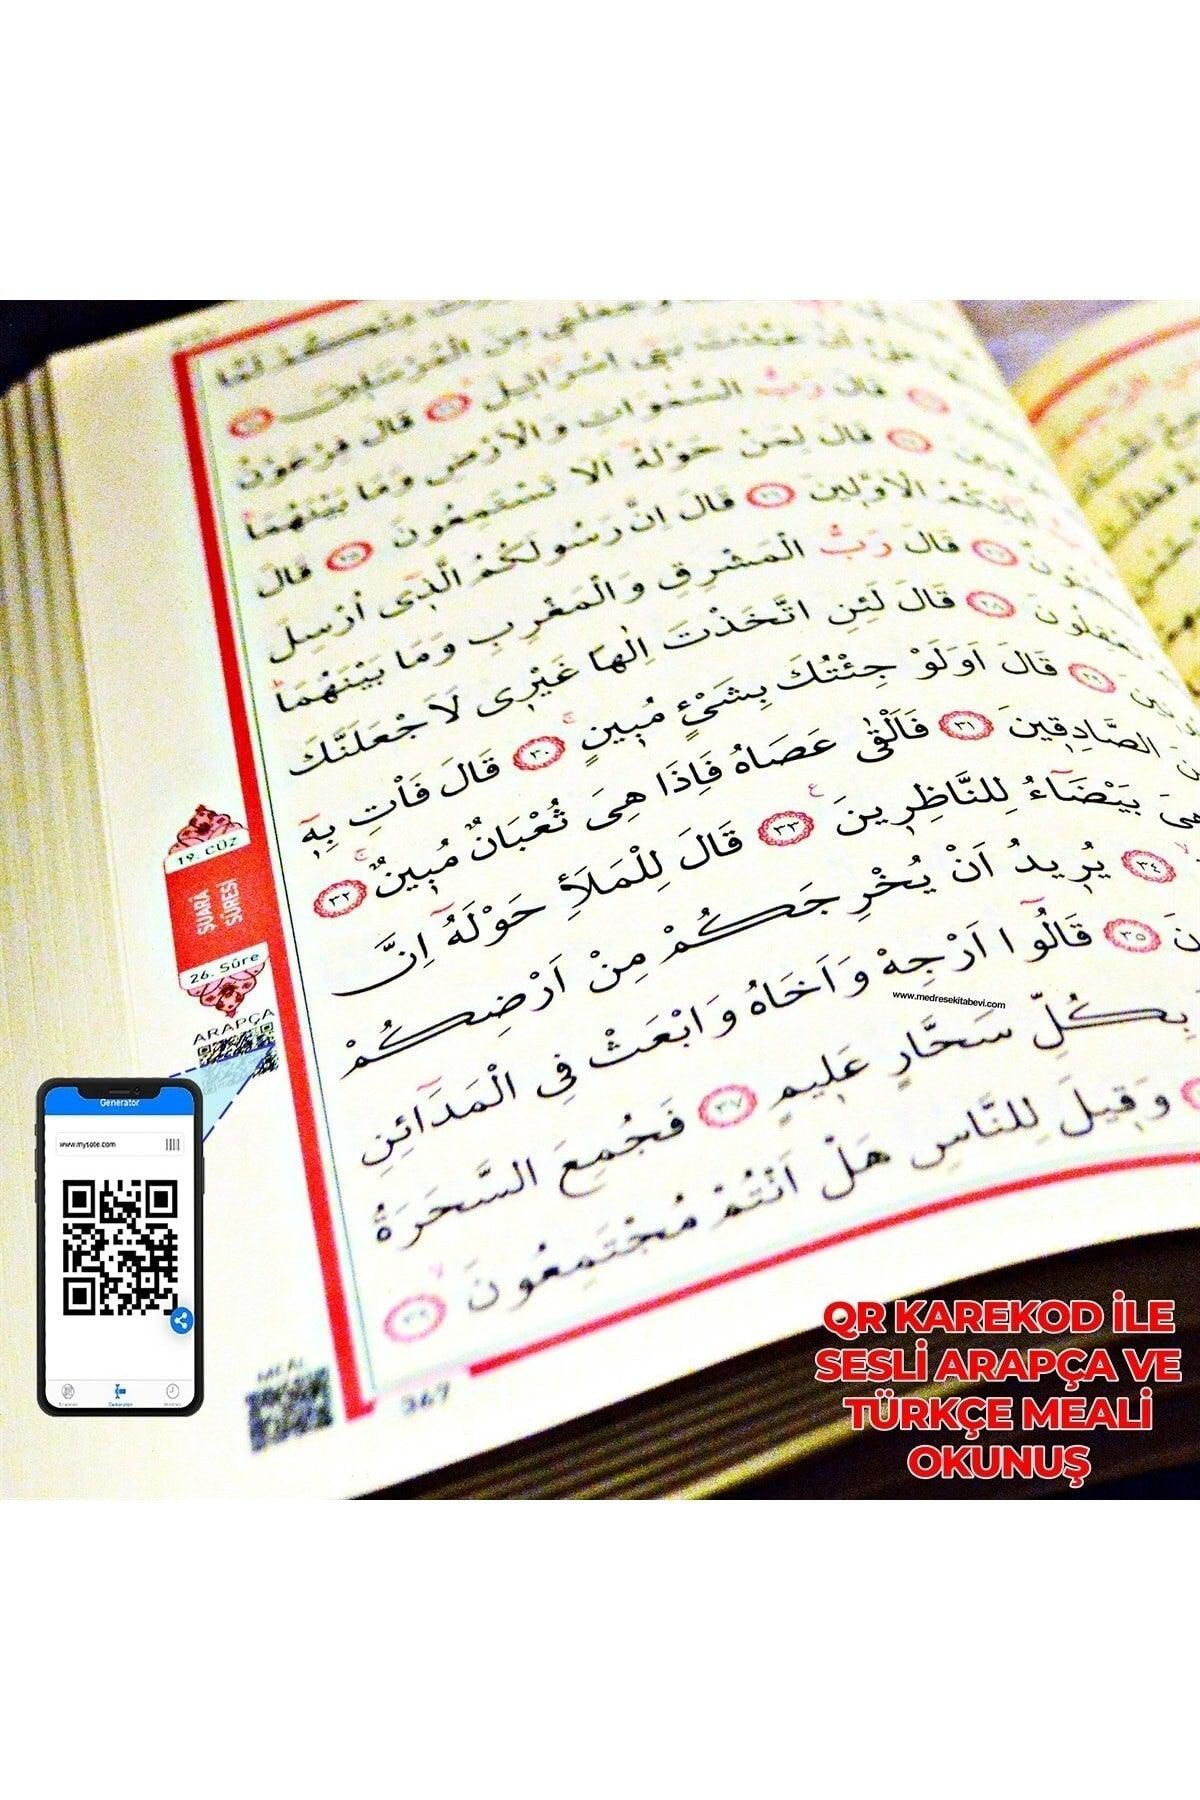 مِنَ الْمُرْسَلِينَ
عَبَّدْتَ بَنٖٓى اِسْرَٓائٖلَ ﴿٢٢﴾ قَالَ فِرْعَوْنُ
قَالَ رَبُّ السَّمٰوَاتِ وَالْاَرْضِ وَمَا بَيْنَهُمَا
قَالَ لِمَنْ حَوْلَهُٓ اَلَا تَسْتَمِعُونَ ﴿٢٥﴾ قَالَ
اٰبَٓائِكُمُ الْاَوَّلٖينَ ﴿٢٦﴾ قَالَ اِنَّ رَسُولَكُمُ الَّذٖٓى اُرْسِلَ
﴿٢٧﴾ قَالَ رَبُّ الْمَشْرِقِ وَالْمَغْرِبِ وَمَا بَيْنَهُمَا
تَعْقِلُونَ ﴿٢٨﴾ قَالَ لَئِنِ اتَّخَذْتَ اِلٰهًا غَيْرٖى لَاَجْعَلَنَّكَ
﴿٢٩﴾ قَالَ اَوَلَوْ جِئْتُكَ بِشَيْءٍ مُبٖينٍ ﴿٣٠﴾ قَالَ فَأْتِ بِهٖٓ
الصَّادِقٖينَ ﴿٣١﴾ فَاَلْقٰى عَصَاهُ فَاِذَا هِىَ ثُعْبَانٌ مُبٖينٌ ﴿٣٢﴾
هِىَ بَيْضَٓاءُ لِلنَّاظِرٖينَ ﴿٣٣﴾ قَالَ لِلْمَلَأِ حَوْلَهُٓ اِنَّ
﴿٣٤﴾ يُرٖيدُ اَنْ يُخْرِجَكُمْ مِنْ اَرْضِكُمْ
﴿٣٥﴾ قَالُٓوا اَرْجِهْ وَاَخَاهُ وَابْعَثْ فِى الْمَدَٓائِنِ
بِكُلِّ سَحَّارٍ عَلٖيمٍ ﴿٣٧﴾ فَجُمِعَ السَّحَرَةُ
وَقٖيلَ لِلنَّاسِ هَلْ اَنْتُمْ مُجْتَمِعُونَ ﴿٣٩﴾
19. CÜZ
ŞUARÂ
SÛRESİ
26. Sûre
ARAPÇA
MEAL
367
www.medresekitabevi.com
Generator
www.mysote.com
Generator
QR KAREKOD İLE
SESLİ ARAPÇA VE
TÜRKÇE MEALİ
OKUNUŞ